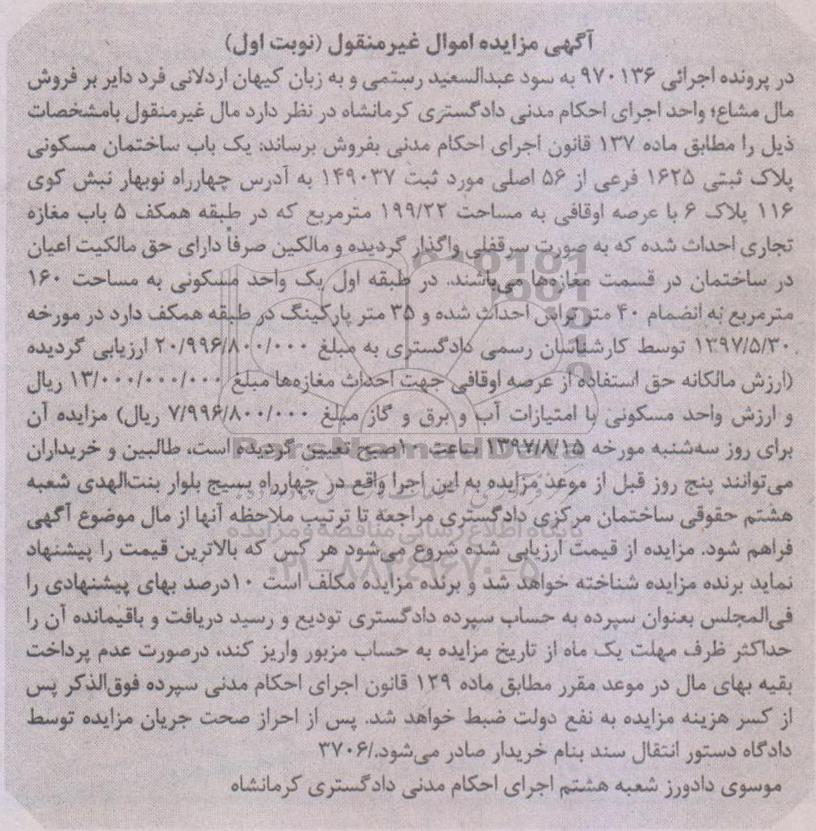 آگهی مزایده اموال غیرمنقول (نوبت اول)
در پرونده اجرائی ۹۷۰۱۳۶ به سود عبدالسعید رستمی و به زبان کیهان اردلانی فرد دایر بر فروش
مال مشاع؛ واحد اجرای احکام مدنی دادگستری کرمانشاه در نظر دارد مال غیرمنقول بامشخصات
ذیل را مطابق ماده ۱۳۷ قانون اجرای احکام مدنی بفروش برساند: یک باب ساختمان مسکونی
پلاک ثبتی ۱۶۲۵ فرعی از ۵۶ اصلی مورد ثبت ۱۴۹۰۳۷ به آدرس چهارراه نوبهار نبش کوی
۱۱۶ پلاک ۶ با عرصه اوقافی به مساحت ۱۹۹/۲۲ مترمربع که در طبقه همکف ۵ باب مغازه
تجاری احداث شده که به صورت سرقفلی واگذار گردیده و مالکین صرفاً دارای حق مالکیت اعیان
در ساختمان در قسمت مغازه‌ها می‌باشند. در طبقه اول یک واحد مسکونی به مساحت ۱۶۰
مترمربع به انضمام ۴۰ متر تراس احداث شده و ۳۵ متر پارکینگ در طبقه همکف دارد در مورخه
۱۳۹۷/۵/۳۰ توسط کارشناسان رسمی دادگستری به مبلغ ۲۰/۹۹۶/۸۰۰/۰۰۰ ارزیابی گردیده
(ارزش مالکانه حق استفاده از عرصه اوقافی جهت احداث مغازه‌ها مبلغ ۱۳/۰۰۰/۰۰۰/۰۰۰ ریال
و ارزش واحد مسکونی با امتیازات آب و برق و گاز مبلغ ۷/۹۹۶/۸۰۰/۰۰۰ ریال) مزایده آن
برای روز سه‌شنبه مورخه ۱۳۹۷/۸/۱۵ ساعت ۱۰صبح تعیین گردیده است، طالبین و خریداران
می‌توانند پنج روز قبل از موعد مزایده به این اجرا واقع در چهارراه بسیج بلوار بنت‌الهدی شعبه
هشتم حقوقی ساختمان مرکزی دادگستری مراجعه تا ترتیب ملاحظه آنها از مال موضوع آگهی
فراهم شود. مزایده از قیمت ارزیابی شده شروع می‌شود هر کس که بالاترین قیمت را پیشنهاد
نماید برنده مزایده شناخته خواهد شد و برنده مزایده مکلف است ۱۰درصد بهای پیشنهادی را
فی‌المجلس بعنوان سپرده به حساب سپرده دادگستری تودیع و رسید دریافت و باقیمانده آن را
حداکثر ظرف مهلت یک ماه از تاریخ مزایده به حساب مزبور واریز کند، درصورت عدم پرداخت
بقیه بهای مال در موعد مقرر مطابق ماده ۱۲۹ قانون اجرای احکام مدنی سپرده فوق‌الذکر پس
از کسر هزینه مزایده به نفع دولت ضبط خواهد شد. پس از احراز صحت جریان مزایده توسط
دادگاه دستور انتقال سند بنام خریدار صادر می‌شود./۳۷۰۶
موسوی دادورز شعبه هشتم اجرای احکام مدنی دادگستری کرمانشاه
ParsNamadData
پایگاه اطلاع رسانی مناقصه و مزایده
۰۲۱-۸۸۳۴۹۶۷۰-۵